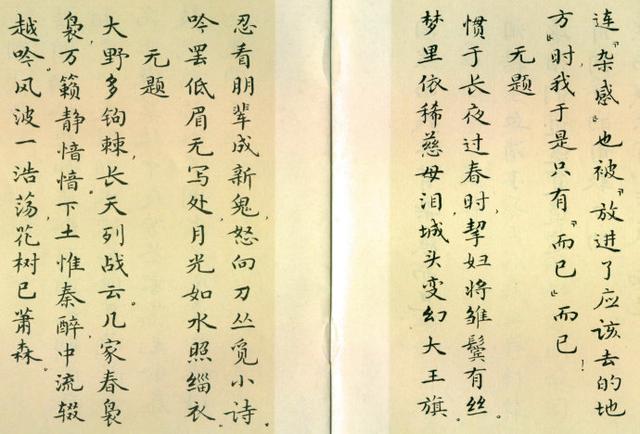 连『杂感』也被『放进了应该去的地
方』时，我于是只有『而已』而已！
无题
惯于长夜过春时，挈妇将雏鬓有丝。
梦里依稀慈母泪，城头变幻大王旗。
忍看朋辈成新鬼，怒向刀丛觅小诗。
吟罢低眉无写处，月光如水照缁衣。
无题
大野多钩棘，长天列战云。几家春袅
袅，万籁静愔愔。下土惟秦醉，中流辍
越吟。风波一浩荡，花树已萧森。